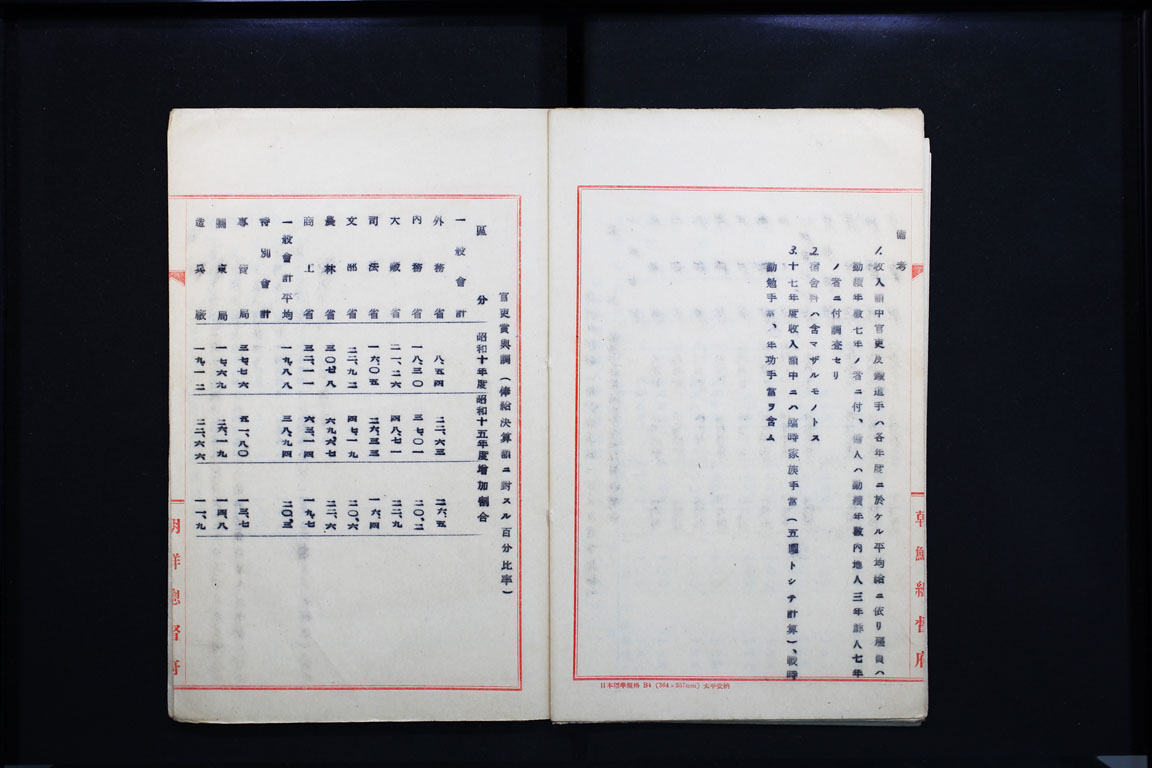 備考
1. 收入額中官吏及鐵道手ハ各年度ニ於ケル平均給ニ依リ雇員ハ
勤續年數七年ノ者ニ付、傭人ハ勤續年數內地人三年鮮人七年
ノ者ニ付調査セリ
2. 宿舍料ハ含マザルモノトス
3. 十七年度收入額中ニハ臨時家族手當(五圓トシテ計算)、戰時
勤勉手當、年功手當ヲ含ム
朝鮮總督府
日本標準規格 B4 (364×257mm)
官吏賞與調(俸給決算額ニ對スル百分比率)
區分 昭和十年度 昭和十五年度 增加割合
一般會計
外務省 八、五四 二二、六三 二六、五
內務省 一八、三〇 三七、〇一 二〇、二
大藏省 二一、二六 四八、七一 二二、九
司法省 一六、〇五 二六、三三 一六、四
文部省 二二、九二 四七、一九 二〇、六
農林省 三〇、七八 六九、六七 二二、六
商工省 三二、一一 六三、一四 一九、七
一般會計平均 一九、八八 三八、九四 二〇、三
特別會計
專賣局 三七、七六 五一、八〇 一三、七
一七、六九 二六、一九 一四、八
造兵廠 一九、一二 二二、六六 一一、九
朝鮮總督府